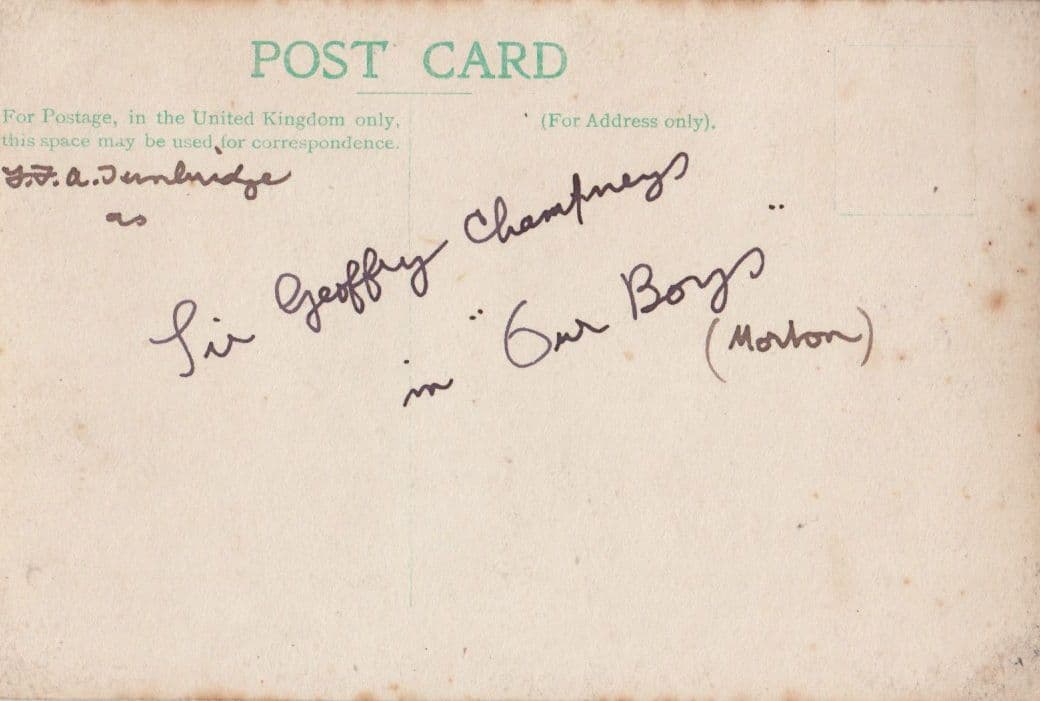 POST CARD
For Postage, in the United Kingdom only,
this space may be used for correspondence.
(For Address only).
as
Sir Geoffry Champneys
in "Our Boys"
(Morton)